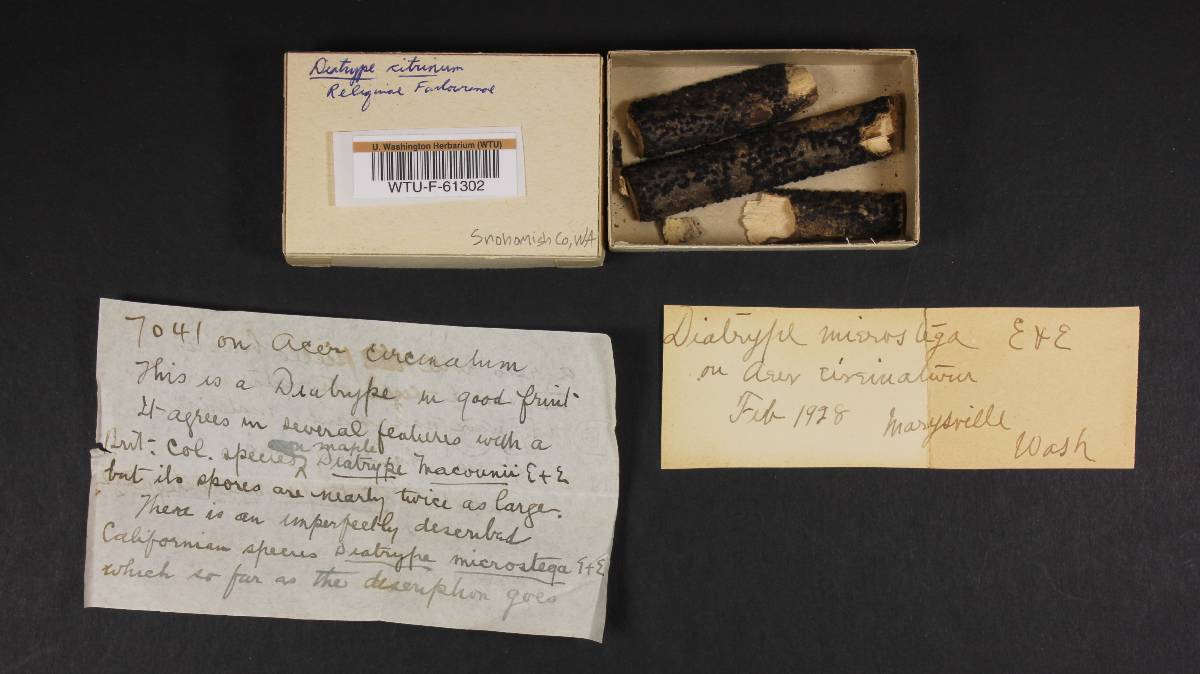 Diatrype citrinum
Reliquiae Farlowianae
U. Washington Herbarium (WTU)
WTU-F-61302
Snohomish Co, WA
7041 on Acer circinatum
This is a Diatrype in good fruit
It agrees in several features with a
on maple
Brit. Col. species Diatrype Macounii E+E
but its spores are nearly twice as large.
There is an imperfectly described
Californian species Diatrype microstega E+E
which so far as the description goes
Diatrype microstega E & E
on Acer circinatum
Feb 1928 Marysville
Wash